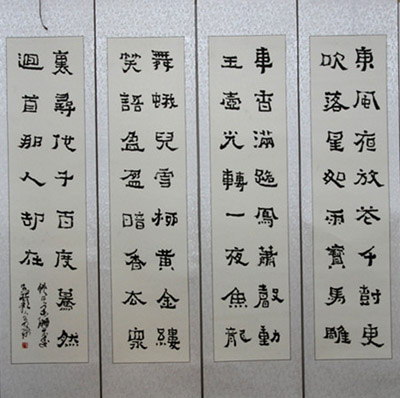 東風夜放花千樹更
吹落星如雨寶馬雕
車香滿路鳳簫聲動
玉壺光轉一夜魚龍
舞蛾兒雪柳黃金縷
笑語盈盈暗香去衆
裏尋他千百度驀然
迴首那人却在